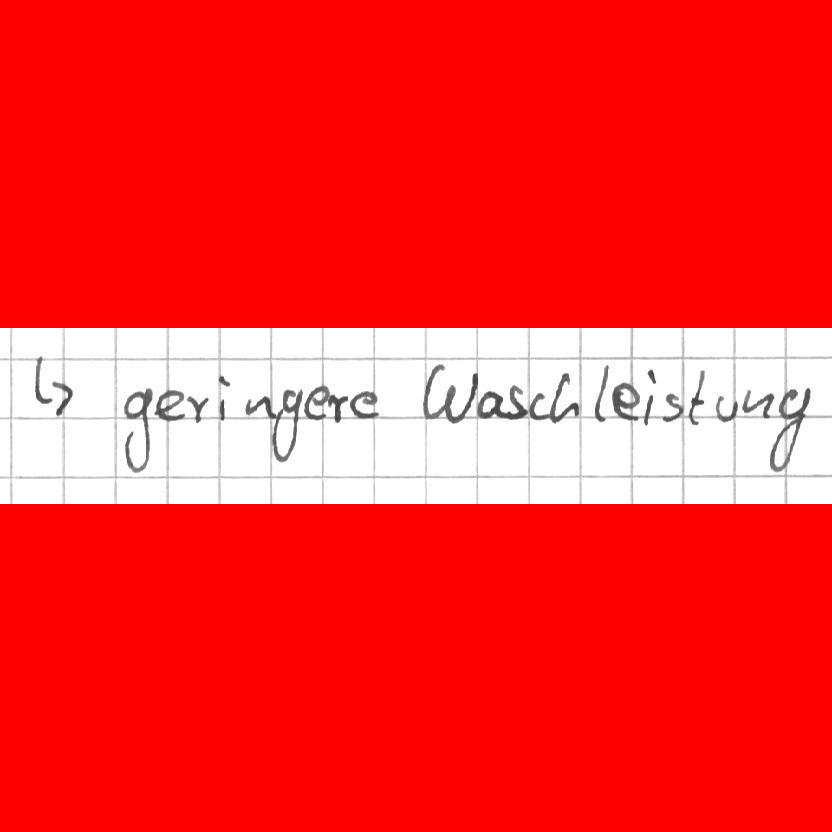 ↳ geringere Waschleistung